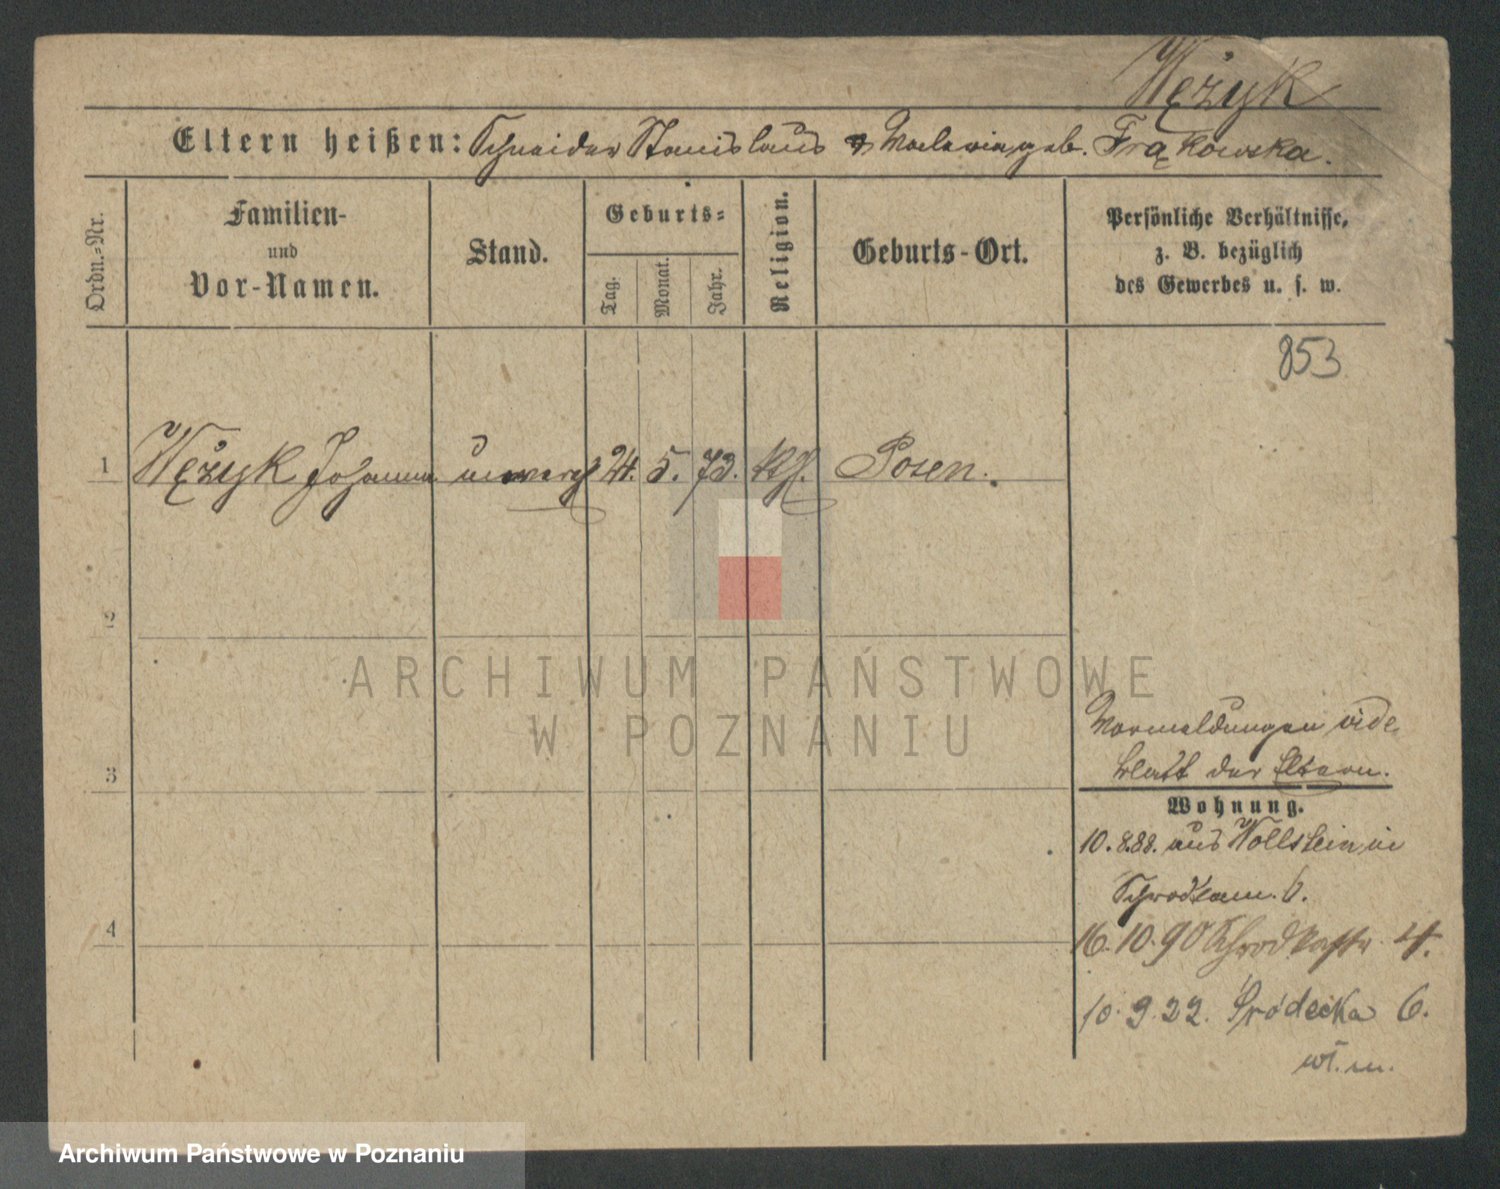 Wężyk
Eltern heißen: Schneider Stanislaus & geb. Frąkowska.
Ordn.-Nr.
Familien-
und
Vor-Namen.
Stand.
Geburts-
Tag.
Monat.
Jahr.
Religion.
Geburts-Ort.
Persönliche Verhältnisse,
z. B. bezüglich
des Gewerbes u. s. w.
853
1 Wężyk Johanna unverh 24. 5. 73. kth. Posen.
2
3
4
Vormeldungen vide
Blatt der Eltern.
Wohnung.
10. 8.88. aus Wollstein in
6.
16.10.90 4.
10.9.22. Śródecka 6.
wł. m.
ARCHIWUM PAŃSTWOWE
W POZNANIU
Archiwum Państwowe w Poznaniu